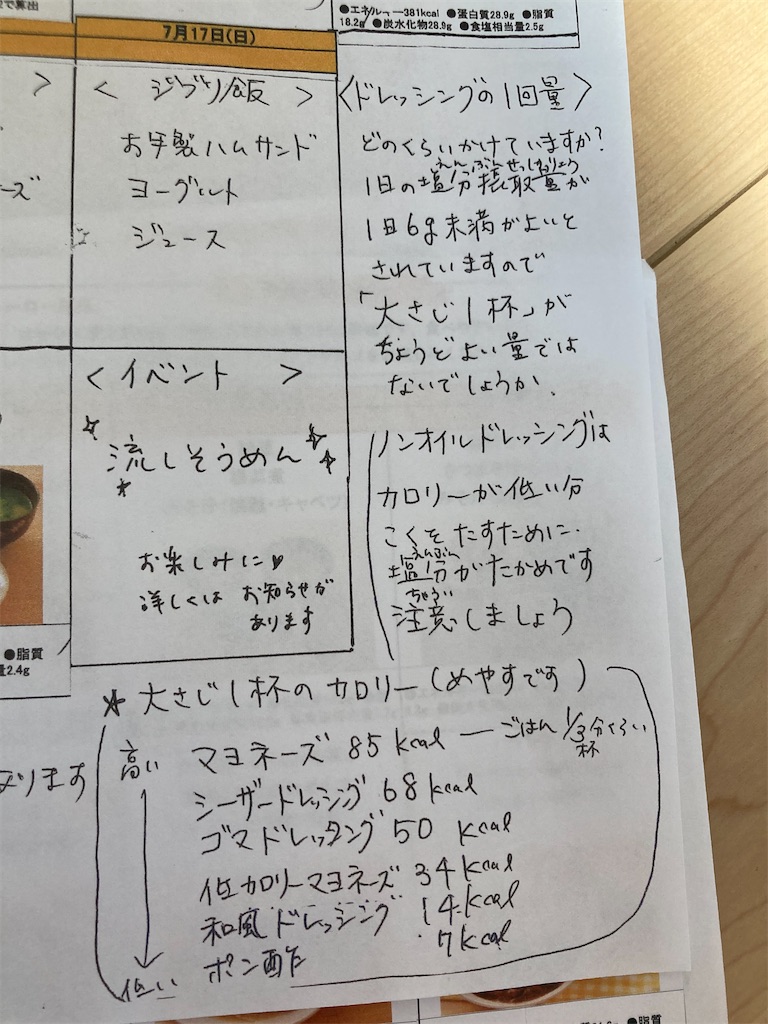 で算出
●エネルギー381kcal ●蛋白質28.9g ●脂質
18.2g ●炭水化物28.9g ●食塩相当量2.5g
7月17日(日)
>
ーズ
< ジブリ飯 >
お手製ハムサンド
ヨーグルト
ジュース
<イベント >
☆流しそうめん☆☆
☆
お楽しみに♥
詳しくは お知らせが
あります
〈ドレッシングの1回量〉
どのくらいかけていますか?
えんぶんせっしゅりょう
1日の塩分摂取量が
1日6g未満がよいと
されていますので
「大さじ1杯」が
ちょうどよい量では
ないでしょうか、
ノンオイルドレッシングは
カロリーが低い分
こくをたすために
えんぶん
塩分がたかめです
ちゅうい
注意しましょう
●脂質
量2.4g
なります
☆大さじ1杯のカロリー(めやすです)
高い
マヨネーズ 85kcal ー ごはん1/3杯分くらい
シーザードレッシング 68kcal
ゴマドレッシング 50 kcal
低カロリーマヨネーズ 34kcal
和風ドレッシング 14kcal
低い
ポン酢 7kcal
●脂質